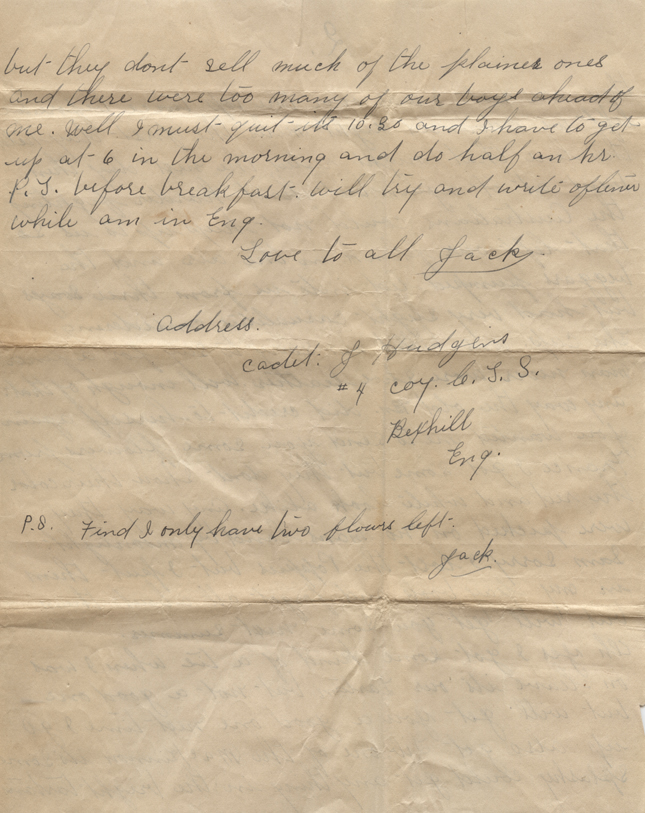 but they dont sell much of the plainer ones
and there were too many of our boys ahead of
me. Well I must quit its 10.30 and I have to get
up at 6 in the morning and do half an hr.
P.T. before breakfast. will try and write oftener
while am in Eng.
Love to all Jack.
Address.
Cadet: J Hudgins
#4 Coy. C. T. S.
Bexhill
Eng.
P.S. Find I only have two flours left.
Jack.